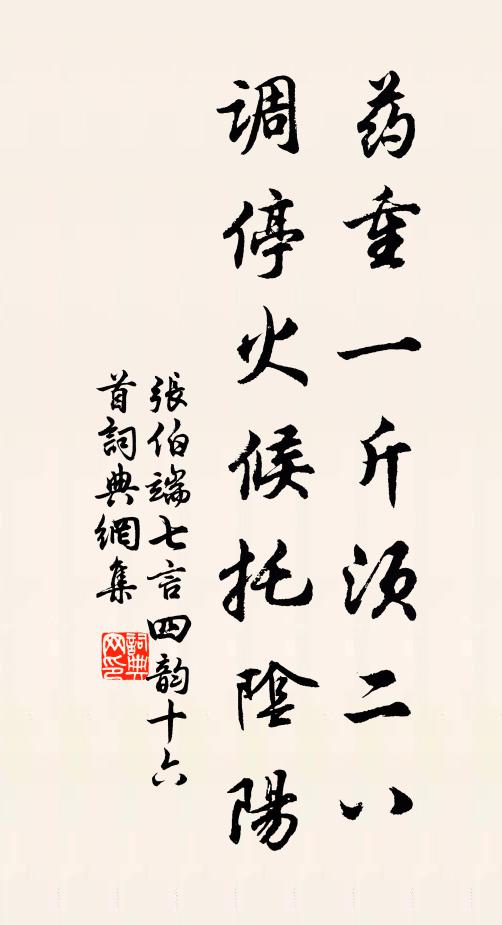 药重一斤須二八
调停火候托陰陽
張伯端七言四韵十六
首詞典網集
詞典
网印